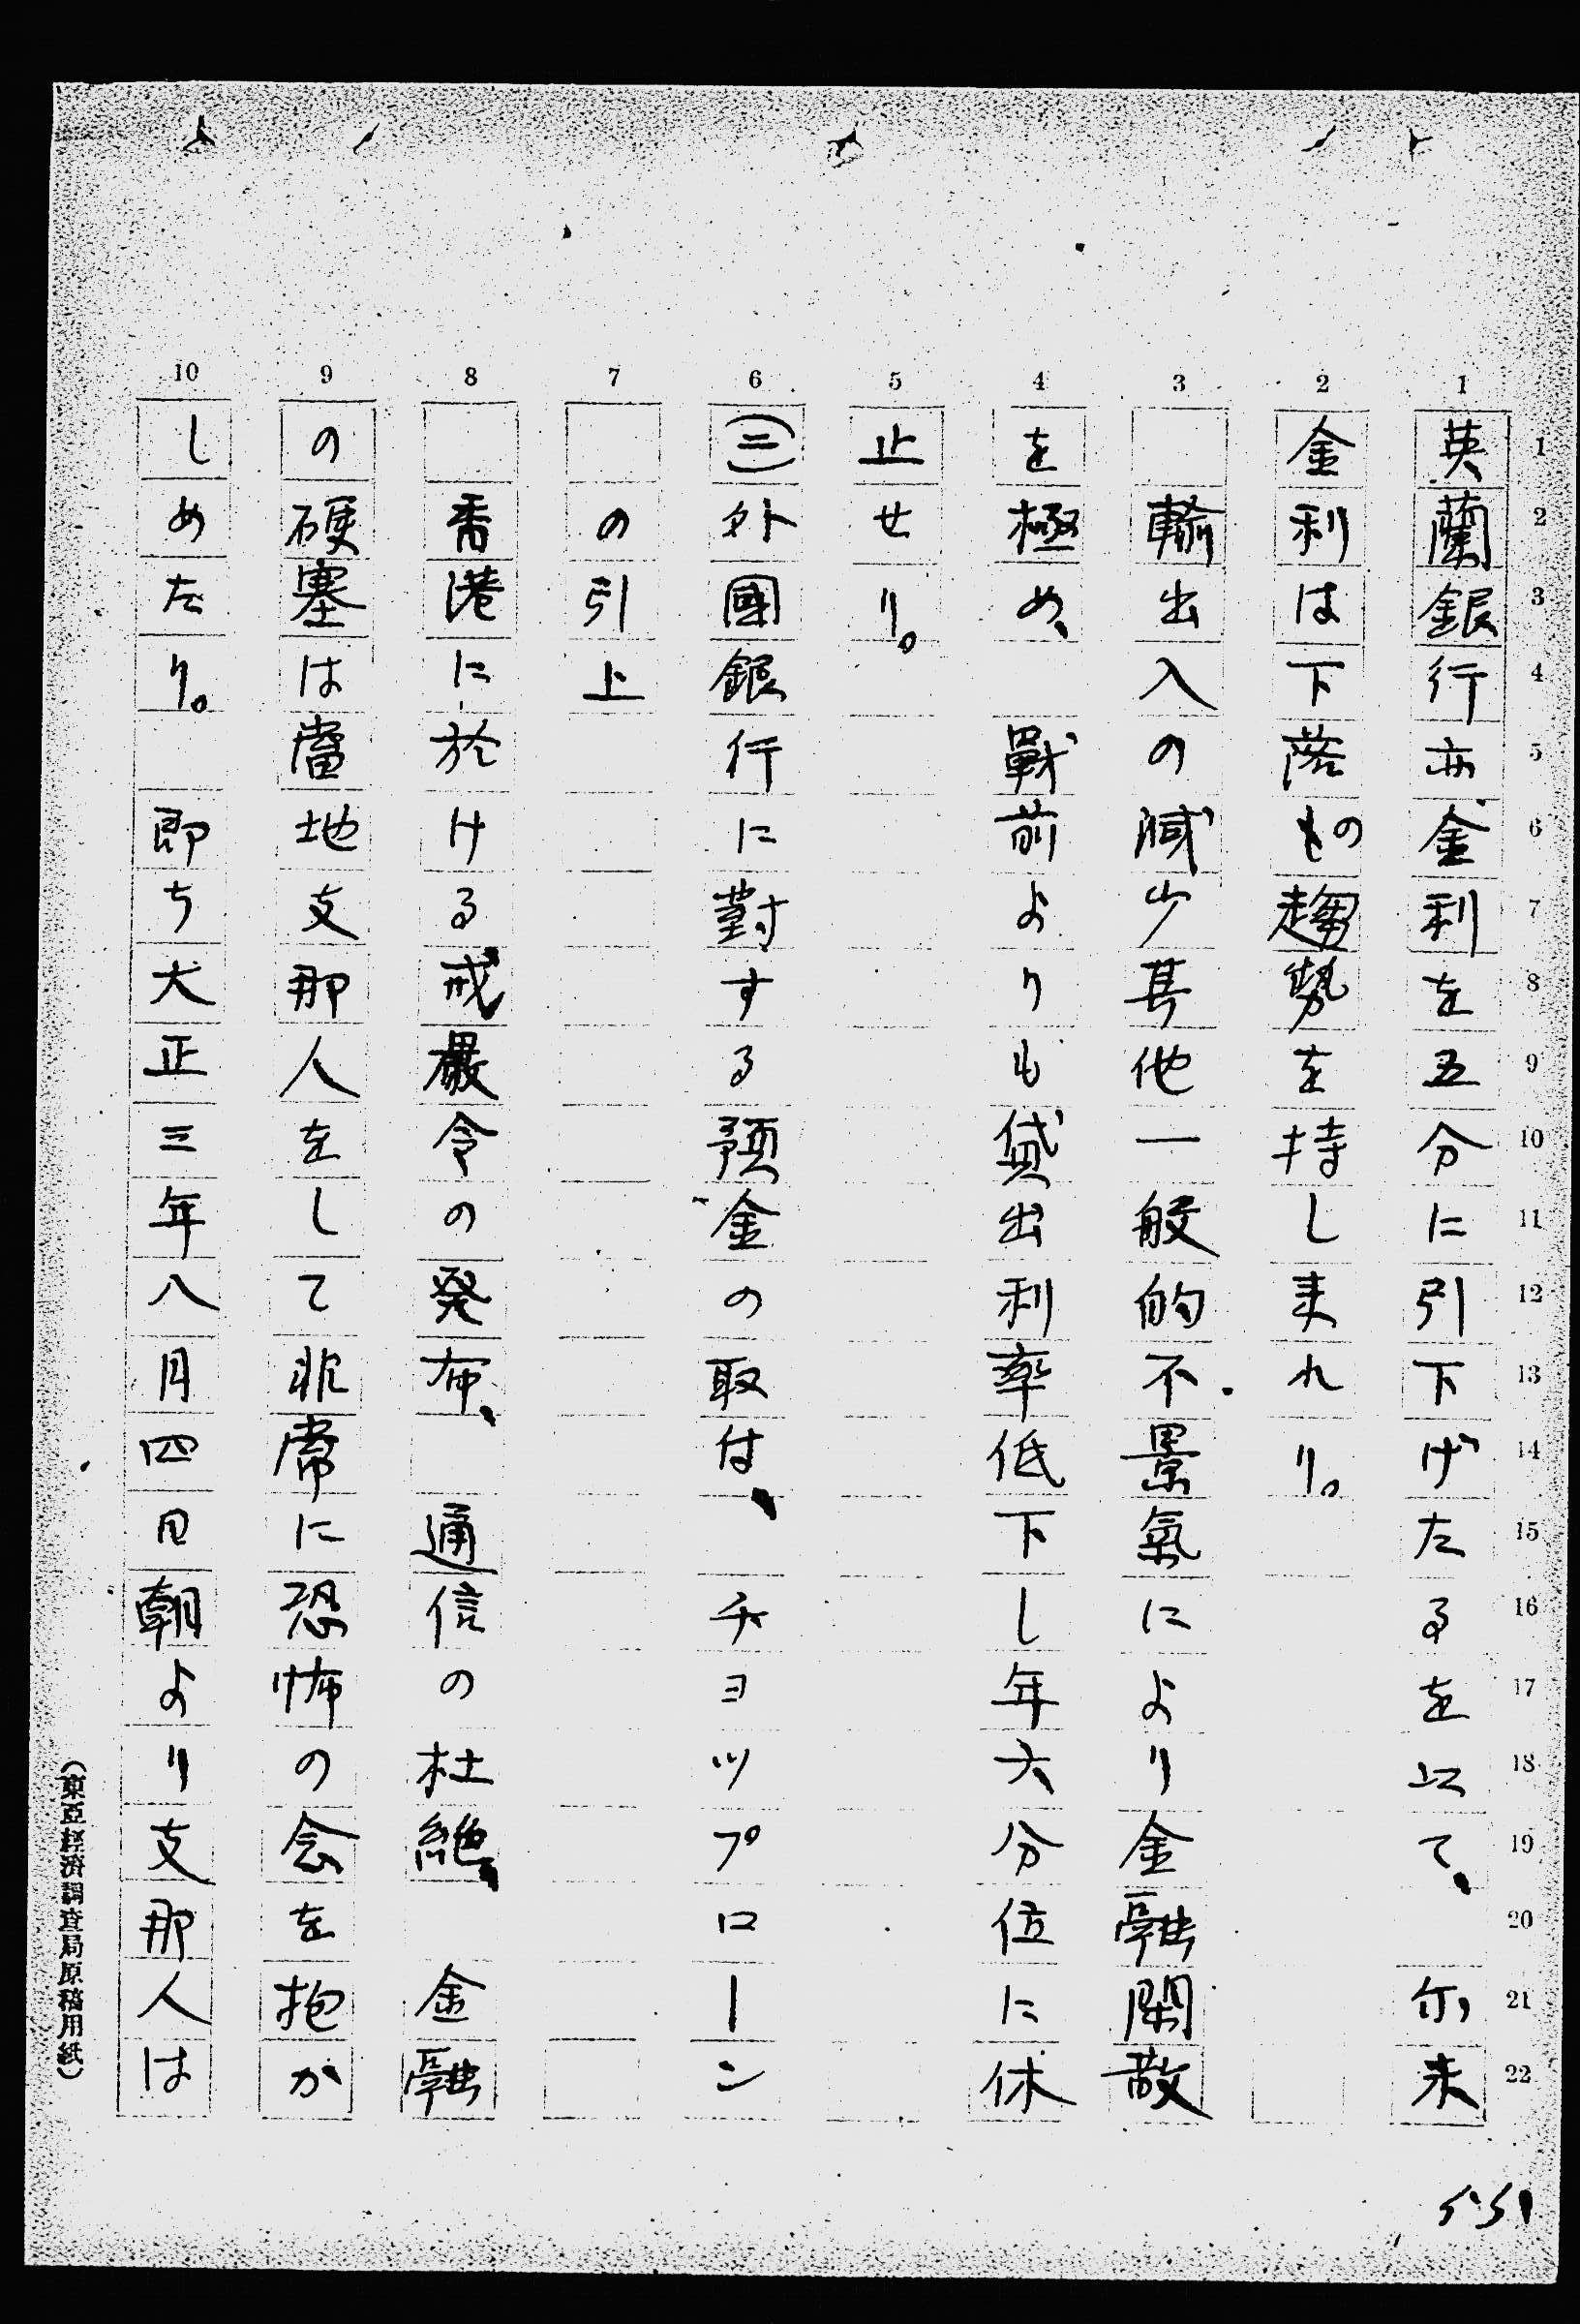 英蘭銀行亦金利を五分に引下げたるを以て、尓来
金利は下落の趨勢を持し来れり。
輸出入の減少其他一般的不景氣により金融閑散
を極め、戰前よりも貸出利率低下し年六分位に休
止せり。
(三)外國銀行に對する預金の取付、チヨツプローン
の引上
香港に於ける戒嚴令の発布、通信の杜絶、金融
の硬塞は當地支那人をして非常に恐怖の念を抱か
しめたり。即ち大正三年八月四日朝より支那人は
1 2 3 4 5 6 7 8 9 10
1 2 3 4 5 6 7 8 9 10 11 12 13 14 15 16 17 18 19 20 21 22
(東亞經濟調査局原稿用紙)